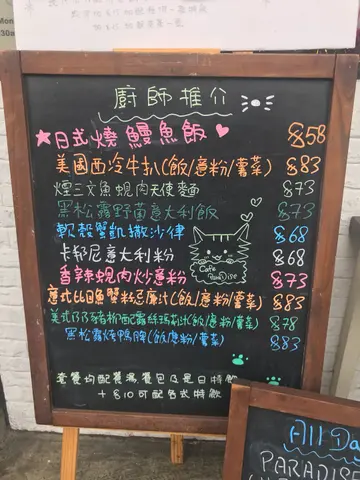 Mon
廚師推介
日式燒鰻魚飯 $58
美國西冷牛扒(飯/意粉/薯菜) $83
煙三文魚蜆肉天使麵 $73
黑松露野菌意大利飯 $73
軟殼蟹凱撒沙律 $68
卡邦尼意大利粉 $68
香辣蜆肉炒意粉 $73
意式比目魚蟹粉忌廉汁(飯/意粉/薯菜) $83
美式BB豬柳西配露絲瑪莉汁(飯/意粉/薯菜) $78
黑松露燒鴨脾(飯/意粉/薯菜) $83
Cafe
ParaDise
套餐均配餐湯,餐包及是日特飲
+ $10可配各式特飲
All Da
PARADISE